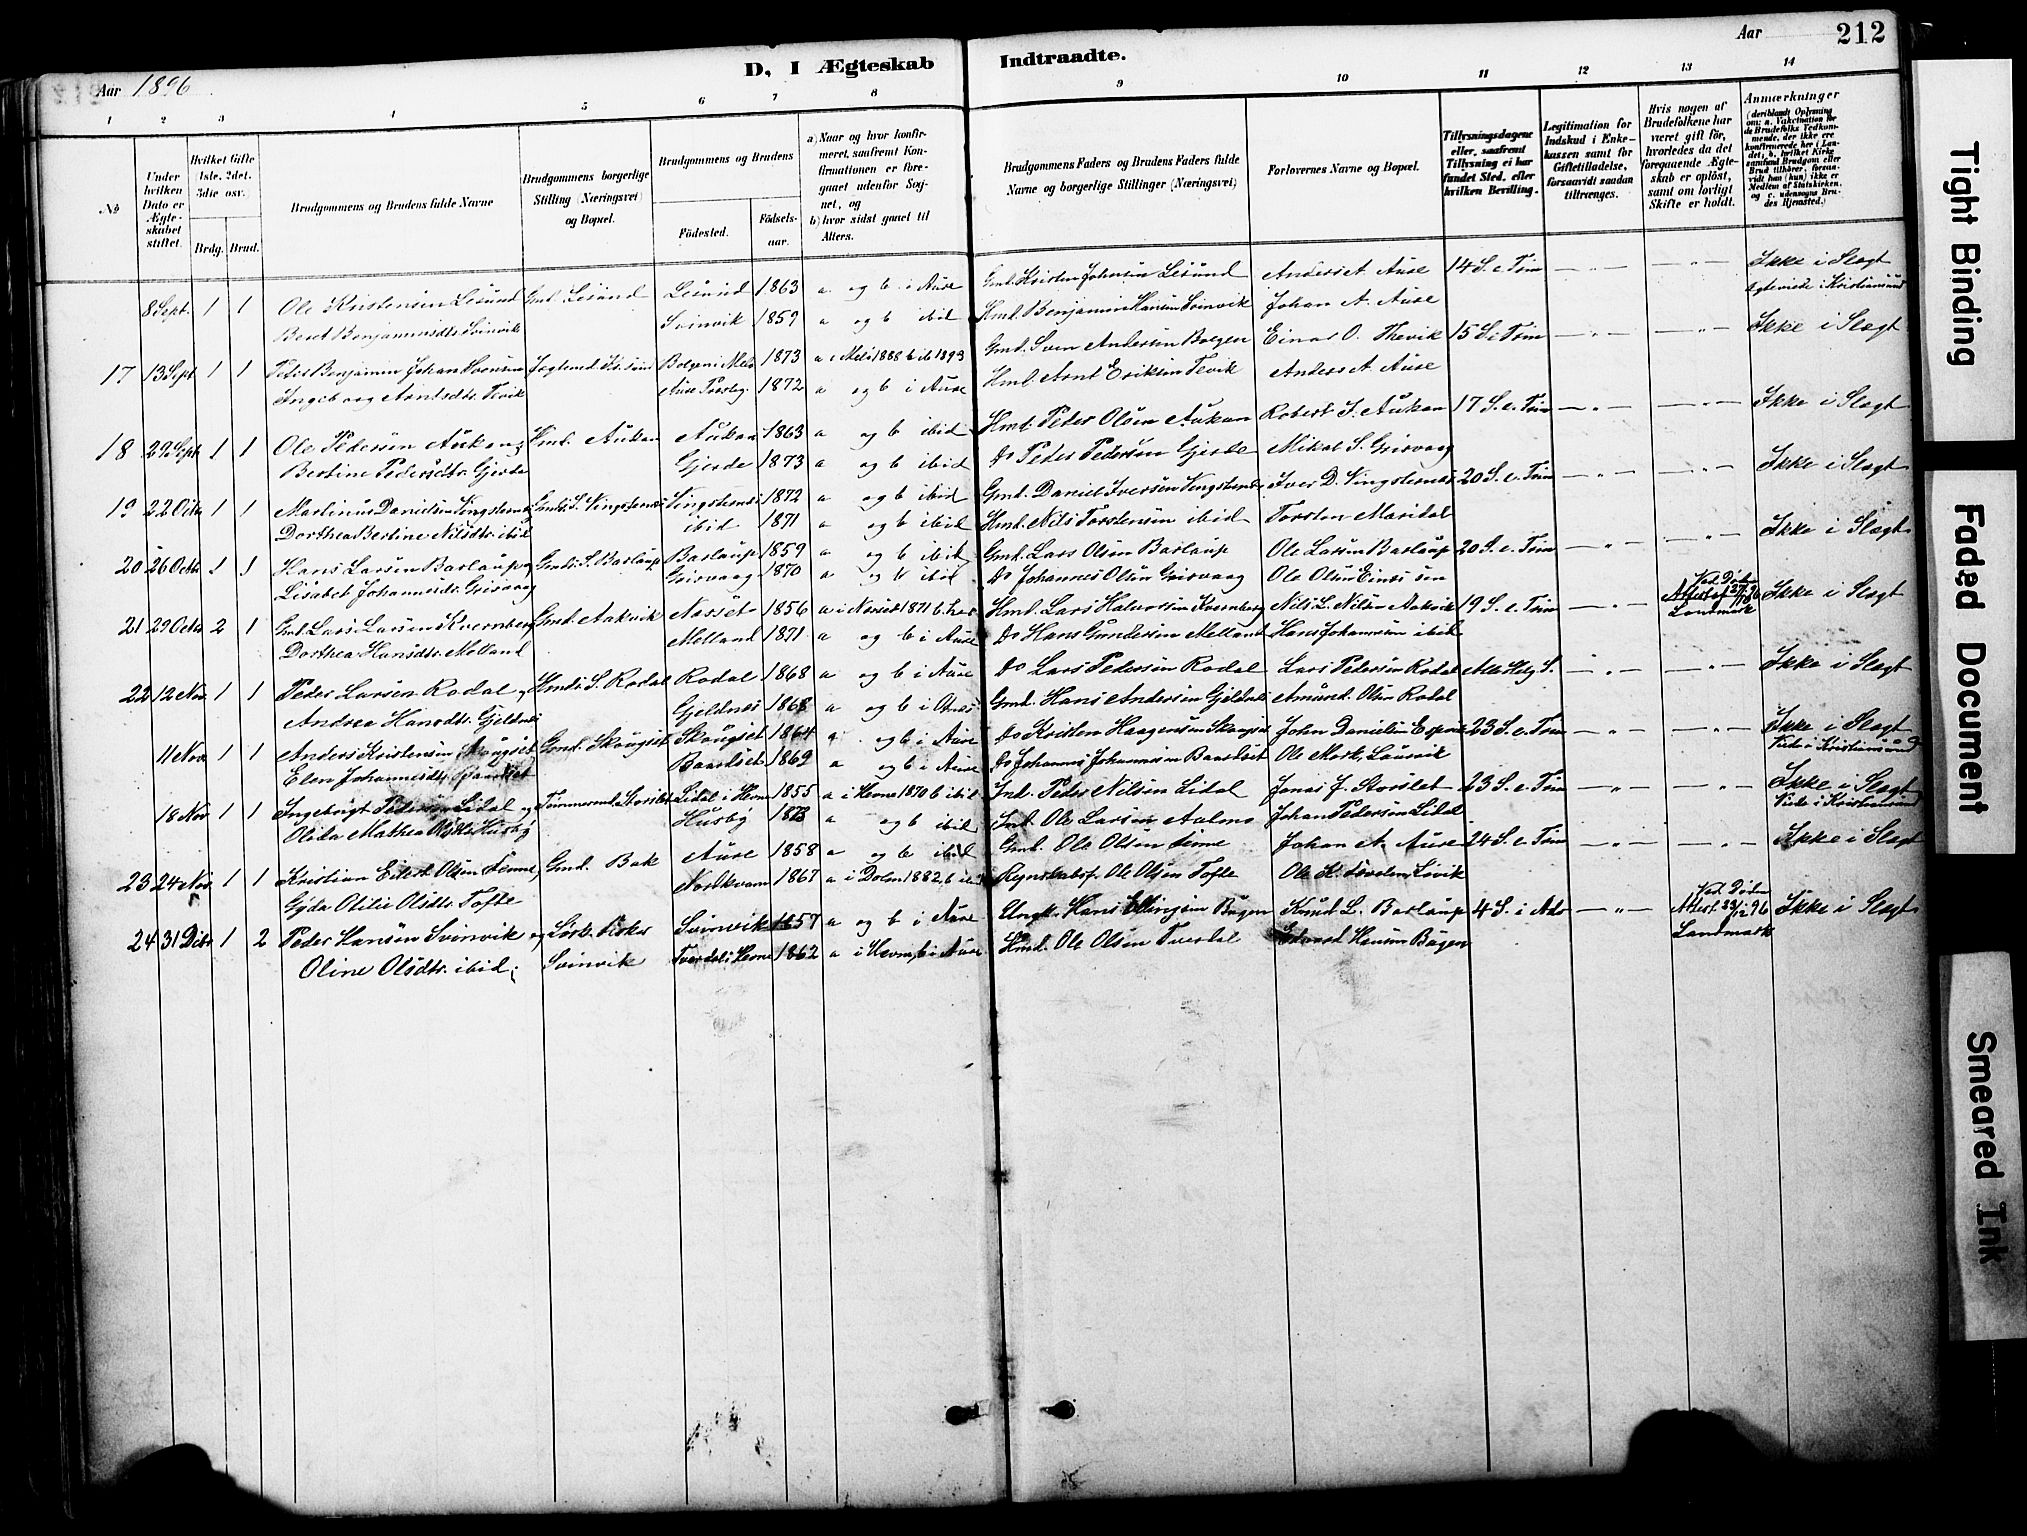 Aar 1896
D, I Ægteskab Indtraadte.
Aar 212
1 2 3 4 5 6 7 8 9 10 11 12 13 14
No
Under hvilken Dato er Ægteskabet stiftet.
Hvilket Gifte (1ste. 2det. 3die osv.
Brdg. Brud.
Brudgommens og Brudens fulde Navne
Brudgommens borgerlige Stilling (Næringsvei) og Bopæl.
Brudgommens og Brudens
Födested.
Födsels-aar.
a) Naar og hvor konfirmeret, saafremt Konfirmationen er foregaaet udenfor Sognet, og
b) hvor sidst gaaet til Alters.
Brudgommens Faders og Brudens Faders fulde Navne og borgerlige Stillinger (Næringsvei)
Forlovernes Navne og Bopæl.
Tillysningsdagene eller, saafremt Tillysning ei har fundet Sted, efter hvilken Bevilling.
Legitimation for Indskud i Enkekassen samt for Giftetilladelse, forsaavidt saadan tiltrænges.
Hvis nogen af Brudefolkene har været gift för, hvorledes da det foregaaende Ægteskab er oplöst, samt om lovligt Skifte er holdt.
Anmærkninger
8 Sept. 1 1 Ole Kristensen Lesund Gmd. Lesund Lesund 1863 a og b i Aure Gmd. Kristen Johnsen Lesund Anders A. Aure 14 S. e. Trin — " — — " — Ikke i Slægt
Beret Benjaminsdtr. Svinvik Svinvik 1859 a og b ibid Hmd. Benjamin Hansen Svinvik Johan A. Aure Egteviede i Kristiansund
17 13 Sept 1 1 Peter Benjamin Johan Svensen 1873 a i Melø 1888 b ib 1893 Gmd. Sven Andersen Bolgen Einar O. Thevik 15 S. e. Trin — " — — " — Ikke i Slægt
Ingeborg Arntsdtr. Tevik 1872 a og b i Aure Hmd. Arnt Eriksen Tevik Anders A. Aure
18 29 Sept 1 1 Ole Pedersen Aukan og Hmd. Aukan Aukan 1863 a og b ibid Hmd. Peder Olsen Aukan Robert J. Aukan 17 S. e. Trin — " — — " — Ikke i Slægt
Bertine Pedersdtr. Gjerde Gjerde 1873 a og b ibid Do Peder Pedersen Gjerde Mikal S. Grisvaag
19 22 Octb 1 1 Martinus Danielsen Vingsternes Gmds. S. Vingsternes Vingsternes 1872 a og b ibid Gmd. Daniel Iversen Vingsternes Iver D. Vingsternes 20 S. e. Trin — " — — " — Ikke i Slægt
Dorthea Bertine Nilsdtr. ibid ibid 1871 a og b ibid Hmd. Nils Torstensen ibid Torsten Maridal
20 26 Octb 1 1 Hans Larsen Barlaup og Gmds. S. Barlaup Barlaup 1859 a og b ibid Gmd. Lars Olsen Barlaup Ole Larsen Barlaup 20 S. e. Trin — " — — " — Ikke i Slægt
Lisabet Johannesdtr. Grisvaag Grisvaag 1870 a og b ibid Do Johannes Olsen Grisvaag Ole Olsen
21 29 Octb 2 1 Gmd. Lars Larsen Kvernberg Gmd. Aakvik Nesset 1856 a i Nesset 1871 b her Hmd. Lars Halvorsen Kvernberg Nils L. Nilsen Aakvik 19 S. e. Trin — " — Ved Døden Attest af 27/10 96 Landmark Ikke i Slægt
Dorthea Hansdtr. Melland Melland 1871 a og b i Aure Do Hans Gundersen Melland Hans Johannsen ibid
22 12 Nov 1 1 Peder Larsen Rodal og Hmds. S. Rodal Rodal 1868 a og b i Aure Do Lars Pedersen Rodal Lars Pedersen Rodal Alle Helg S. — " — — " — Ikke i Slægt
Andrea Hansdtr. Gjeldnes Gjeldnes 1868 a og b i Gmd. Hans Andersen Gjeldnes Amund Olsen Rodal
11 Nov 1 1 Anders Kristensen Skougset Gmd. Skougset Skougset 1864 a og b i Aure Do Kristen Haagensen Skougset John Danielsen 23 S. e. Trin — " — — " — Ikke i Slægt
Elen Johannesdtr. Baardset Baardset 1869 a og b i Aure Do Johannes Johannesen Baardset Ole Mork Laurvik Viede i Kristiansund
18 Nov 1 1 Ingebrigt Pedersen Lidal og Tømmermd. Storslet Lidal i Hevne 1855 a i Hevne 1870 b ibid Inds. Peder Nilsen Lidal Jonas J. Storslet 23 S. e. Trin — " — — " — Ikke i Slægt
Olida Mathea Olsdtr. Husby Husby 1873 a og b ibid Inds. Ole Larsen Johan Pedersen Lidal Viede i Kristiansund
23 24 Nov 1 1 Kristian Eilert Olsen Femne, Gmd. Bak Aure 1858 a og b ibid Gmd. Ole Olsen Femne Johan A. Aure 24 S. e. Trin — " — — " — Ikke i Slægt
Gyda Otilie Olsdtr. Tofte Nordkvam 1867 a i Dolm 1882, b ibid Regnskabsf. Ole Olsen Tofte Ole K.
24 31 Dcbr 1 2 Peder Hansen Svinvik og Lösk. Fisker Svinvik 1857 a og b i Aure Ungk. Hans Ellingsen Bügen Knud L. Barlaup 4 S. i Adv — " — Ved Døden Attest 23/12 96 Landmark Ikke i Slægt
Oline Olsdtr. ibid; Svinvik Tverdal i Hevne 1862 a i Hevne, b i Aure Hmd. Ole Olsen Tverdal Edvard Hansen Bügen
Tight Binding
Faded Document
Smeared Ink